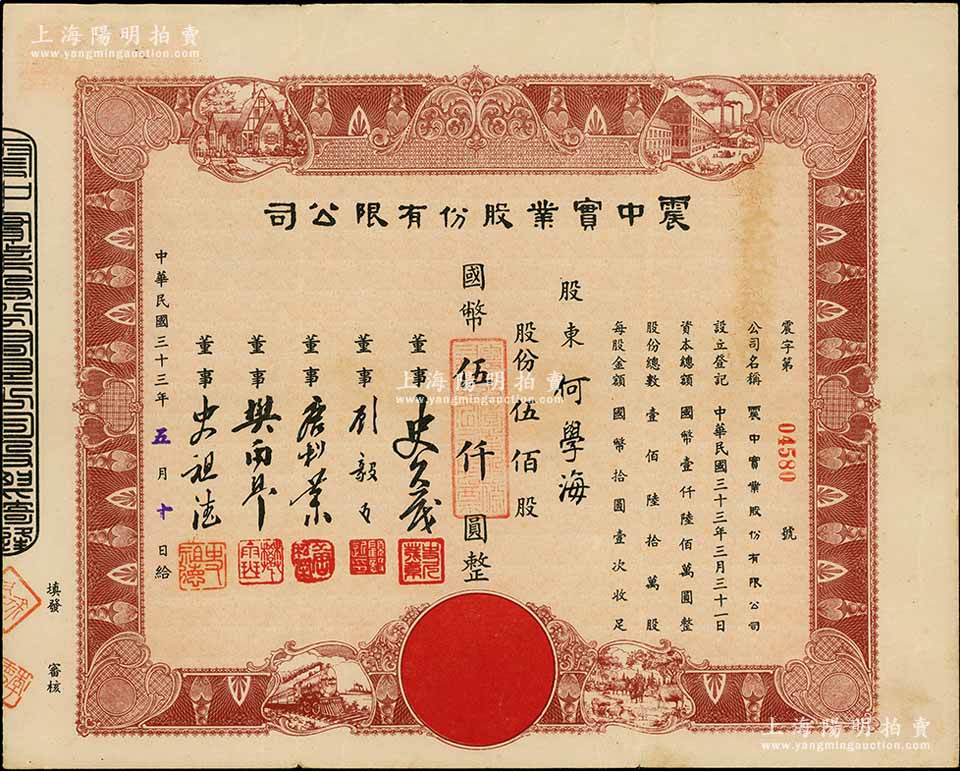 上海陽明拍賣
www.yangmingauction.com
震中實業股份有限公司
震字第04580號
公司名稱 震中實業股份有限公司
設立登記 中華民國三十三年三月三十一日
資本總額 國幣壹仟陸佰萬圓整
股份總數 壹佰陸拾萬股
每股金額 國幣拾圓壹次收足
股東 何學海
股份伍佰股
國幣伍仟圓整
董事
董事
董事 唐叔業
董事 樊雨
董事 史祖德
中華民國三十三年五月十日給
填發 審核
史祖德
上海陽明拍賣
www.yangmingauction.com
上海陽明拍賣
www.yangmingauction.com